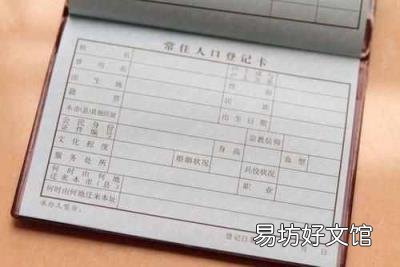 常住人口登记卡
姓 名
性 别
曾 用 名
出 生 地
民 族
籍 贯
出 生 日 期
本市(县)其他住址
宗教信仰
公民身份证件编号
身 高
血 型
文 化 程 度
婚姻状况
兵役状况
服 务 处 所
职 业
何时由何地迁来本市(县)
何时由何地迁来本址
承办人签章:
登记日
日
易坊好文馆